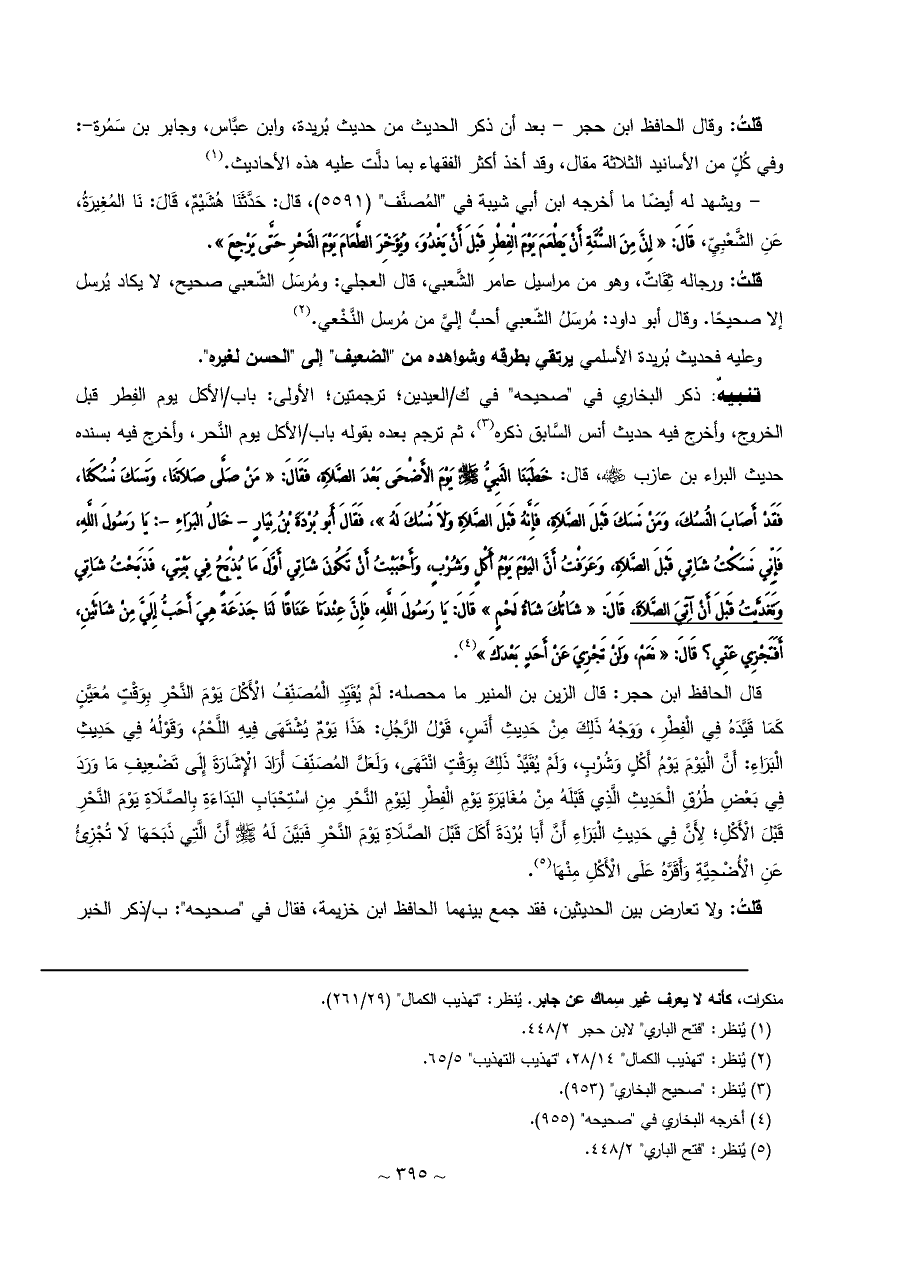 قلتُ: وقال الحافظ ابن حجر – بعد أن ذكر الحديث من حديث بُريدة، وابن عبَّاس، وجابر بن سَمُرة–:
وفي كُلٍّ من الأسانيد الثلاثة مقال، وقد أخذ أكثر الفقهاء بما دلَّت عليه هذه الأحاديث.(١)
– ويشهد له أيضًا ما أخرجه ابن أبي شيبة في "المُصنَّف" (٥٥٩١)، قال: حَدَّثَنَا هُشَيْمٌ، قَالَ: نَا المُغِيرَةُ،
عَنِ الشَّعْبِيِّ، قَالَ: « إِنَّ مِنَ السُّنَّةِ أَنْ يَطْعَمَ يَوْمَ الْفِطْرِ قَبْلَ أَنْ يَغْدُوَ، وَيُؤَخِّرَ الطَّعَامَ يَوْمَ النَّحْرِ حَتَّى يَرْجِعَ ».
قلتُ: ورجاله ثِقَاتٌ، وهو من مراسيل عامر الشَّعبي، قال العجلي: ومُرسَل الشّعبي صحيح، لا يكاد يُرسل
إلا صحيحًا. وقال أبو داود: مُرسَلُ الشّعبي أحبُّ إليَّ من مُرسل النَّخْعي.(٢)
وعليه فحديث بُريدة الأسلمي يرتقي بطرقه وشواهده من "الضعيف" إلى "الحسن لغيره".
تنبيهٌ: ذكر البخاري في "صحيحه" في ك/العيدين؛ ترجمتين؛ الأولى: باب/الأكل يوم الفِطر قبل
الخروج، وأخرج فيه حديث أنس السَّابق ذكره(٣)، ثم ترجم بعده بقوله باب/الأكل يوم النَّحر، وأخرج فيه بسنده
حديث البراء بن عازب ﷺ، قال: خَطَبَنَا النَّبِيُّ ﷺ يَوْمَ الأَضْحَى بَعْدَ الصَّلاَةِ، فَقَالَ: « مَنْ صَلَّى صَلاَتَنَا، وَنَسَكَ نُسُكَنَا،
فَقَدْ أَصَابَ النُّسُكَ، وَمَنْ نَسَكَ قَبْلَ الصَّلاَةِ، فَإِنَّهُ قَبْلَ الصَّلاَةِ وَلاَ نُسُكَ لَهُ »، فَقَالَ أَبُو بُرْدَةَ بْنُ نِيَارٍ – خَالُ البَرَاءِ –: يَا رَسُولَ اللَّهِ،
فَإِنِّي نَسَكْتُ شَاتِي قَبْلَ الصَّلاَةِ، وَعَرَفْتُ أَنَّ اليَوْمَ يَوْمُ أَكْلٍ وَشُرْبٍ، وَأَحْبَبْتُ أَنْ تَكُونَ شَاتِي أَوَّلَ مَا يُذْبَحُ فِي بَيْتِي، فَذَبَحْتُ شَاتِي
وَتَغَدَّيْتُ قَبْلَ أَنْ آتِيَ الصَّلاَةَ، قَالَ: « شَاتُكَ شَاةُ لَحْمٍ » قَالَ: يَا رَسُولَ اللَّهِ، فَإِنَّ عِنْدَنَا عَنَاقًا لَنَا جَذَعَةً هِيَ أَحَبُّ إِلَيَّ مِنْ شَاتَيْنِ،
أَفَتَجْزِي عَنِّي؟ قَالَ: « نَعَمْ، وَلَنْ تَجْزِيَ عَنْ أَحَدٍ بَعْدَكَ »(٤).
قال الحافظ ابن حجر: قال الزين بن المنير ما محصله: لَمْ يُقَيِّدِ الْمُصَنِّفُ الْأَكْلَ يَوْمَ النَّحْرِ بِوَقْتٍ مُعَيَّنٍ
كَمَا قَيَّدَهُ فِي الْفِطْرِ، وَوَجْهُ ذَلِكَ مِنْ حَدِيثِ أَنَسٍ، قَوْلُ الرَّجُلِ: هَذَا يَوْمٌ يُشْتَهَى فِيهِ اللَّحْمُ، وَقَوْلُهُ فِي حَدِيثِ
الْبَرَاءِ: أَنَّ الْيَوْمَ يَوْمُ أَكْلٍ وَشُرْبٍ، وَلَمْ يُقَيِّدْ ذَلِكَ بِوَقْتٍ انْتَهَى، وَلَعَلَّ المُصَنِّفَ أَرَادَ الْإِشَارَةَ إِلَى تَضْعِيفِ مَا وَرَدَ
فِي بَعْضِ طُرُقِ الْحَدِيثِ الَّذِي قَبْلَهُ مِنْ مُغَايَرَةِ يَوْمِ الْفِطْرِ لِيَوْمِ النَّحْرِ مِنِ اسْتِحْبَابِ البَدَاءَةِ بِالصَّلَاةِ يَوْمَ النَّحْرِ
قَبْلَ الْأَكْلِ؛ لِأَنَّ فِي حَدِيثِ الْبَرَاءِ أَنَّ أَبَا بُرْدَةَ أَكَلَ قَبْلَ الصَّلَاةِ يَوْمَ النَّحْرِ فَبَيَّنَ لَهُ ﷺ أَنَّ الَّتِي ذَبَحَهَا لَا تُجْزِئُ
عَنِ الْأُضْحِيَّةِ وَأَقَرَّهُ عَلَى الْأَكْلِ مِنْهَا(٥).
قلتُ: ولا تعارض بين الحديثين، فقد جمع بينهما الحافظ ابن خزيمة، فقال في "صحيحه": ب/ذكر الخبر
منكرات، كأنه لا يعرف غير سِماك عن جابر. يُنظر: "تهذيب الكمال" (٢٦١/٢٩).
(١) يُنظر: "فتح الباري" لابن حجر ٤٤٨/٢.
(٢) يُنظر: "تهذيب الكمال" ٢٨/١٤، "تهذيب التهذيب" ٦٥/٥.
(٣) يُنظر: "صحيح البخاري" (٩٥٣).
(٤) أخرجه البخاري في "صحيحه" (٩٥٥).
(٥) يُنظر: "فتح الباري" ٤٤٨/٢.
~ ٣٩٥ ~